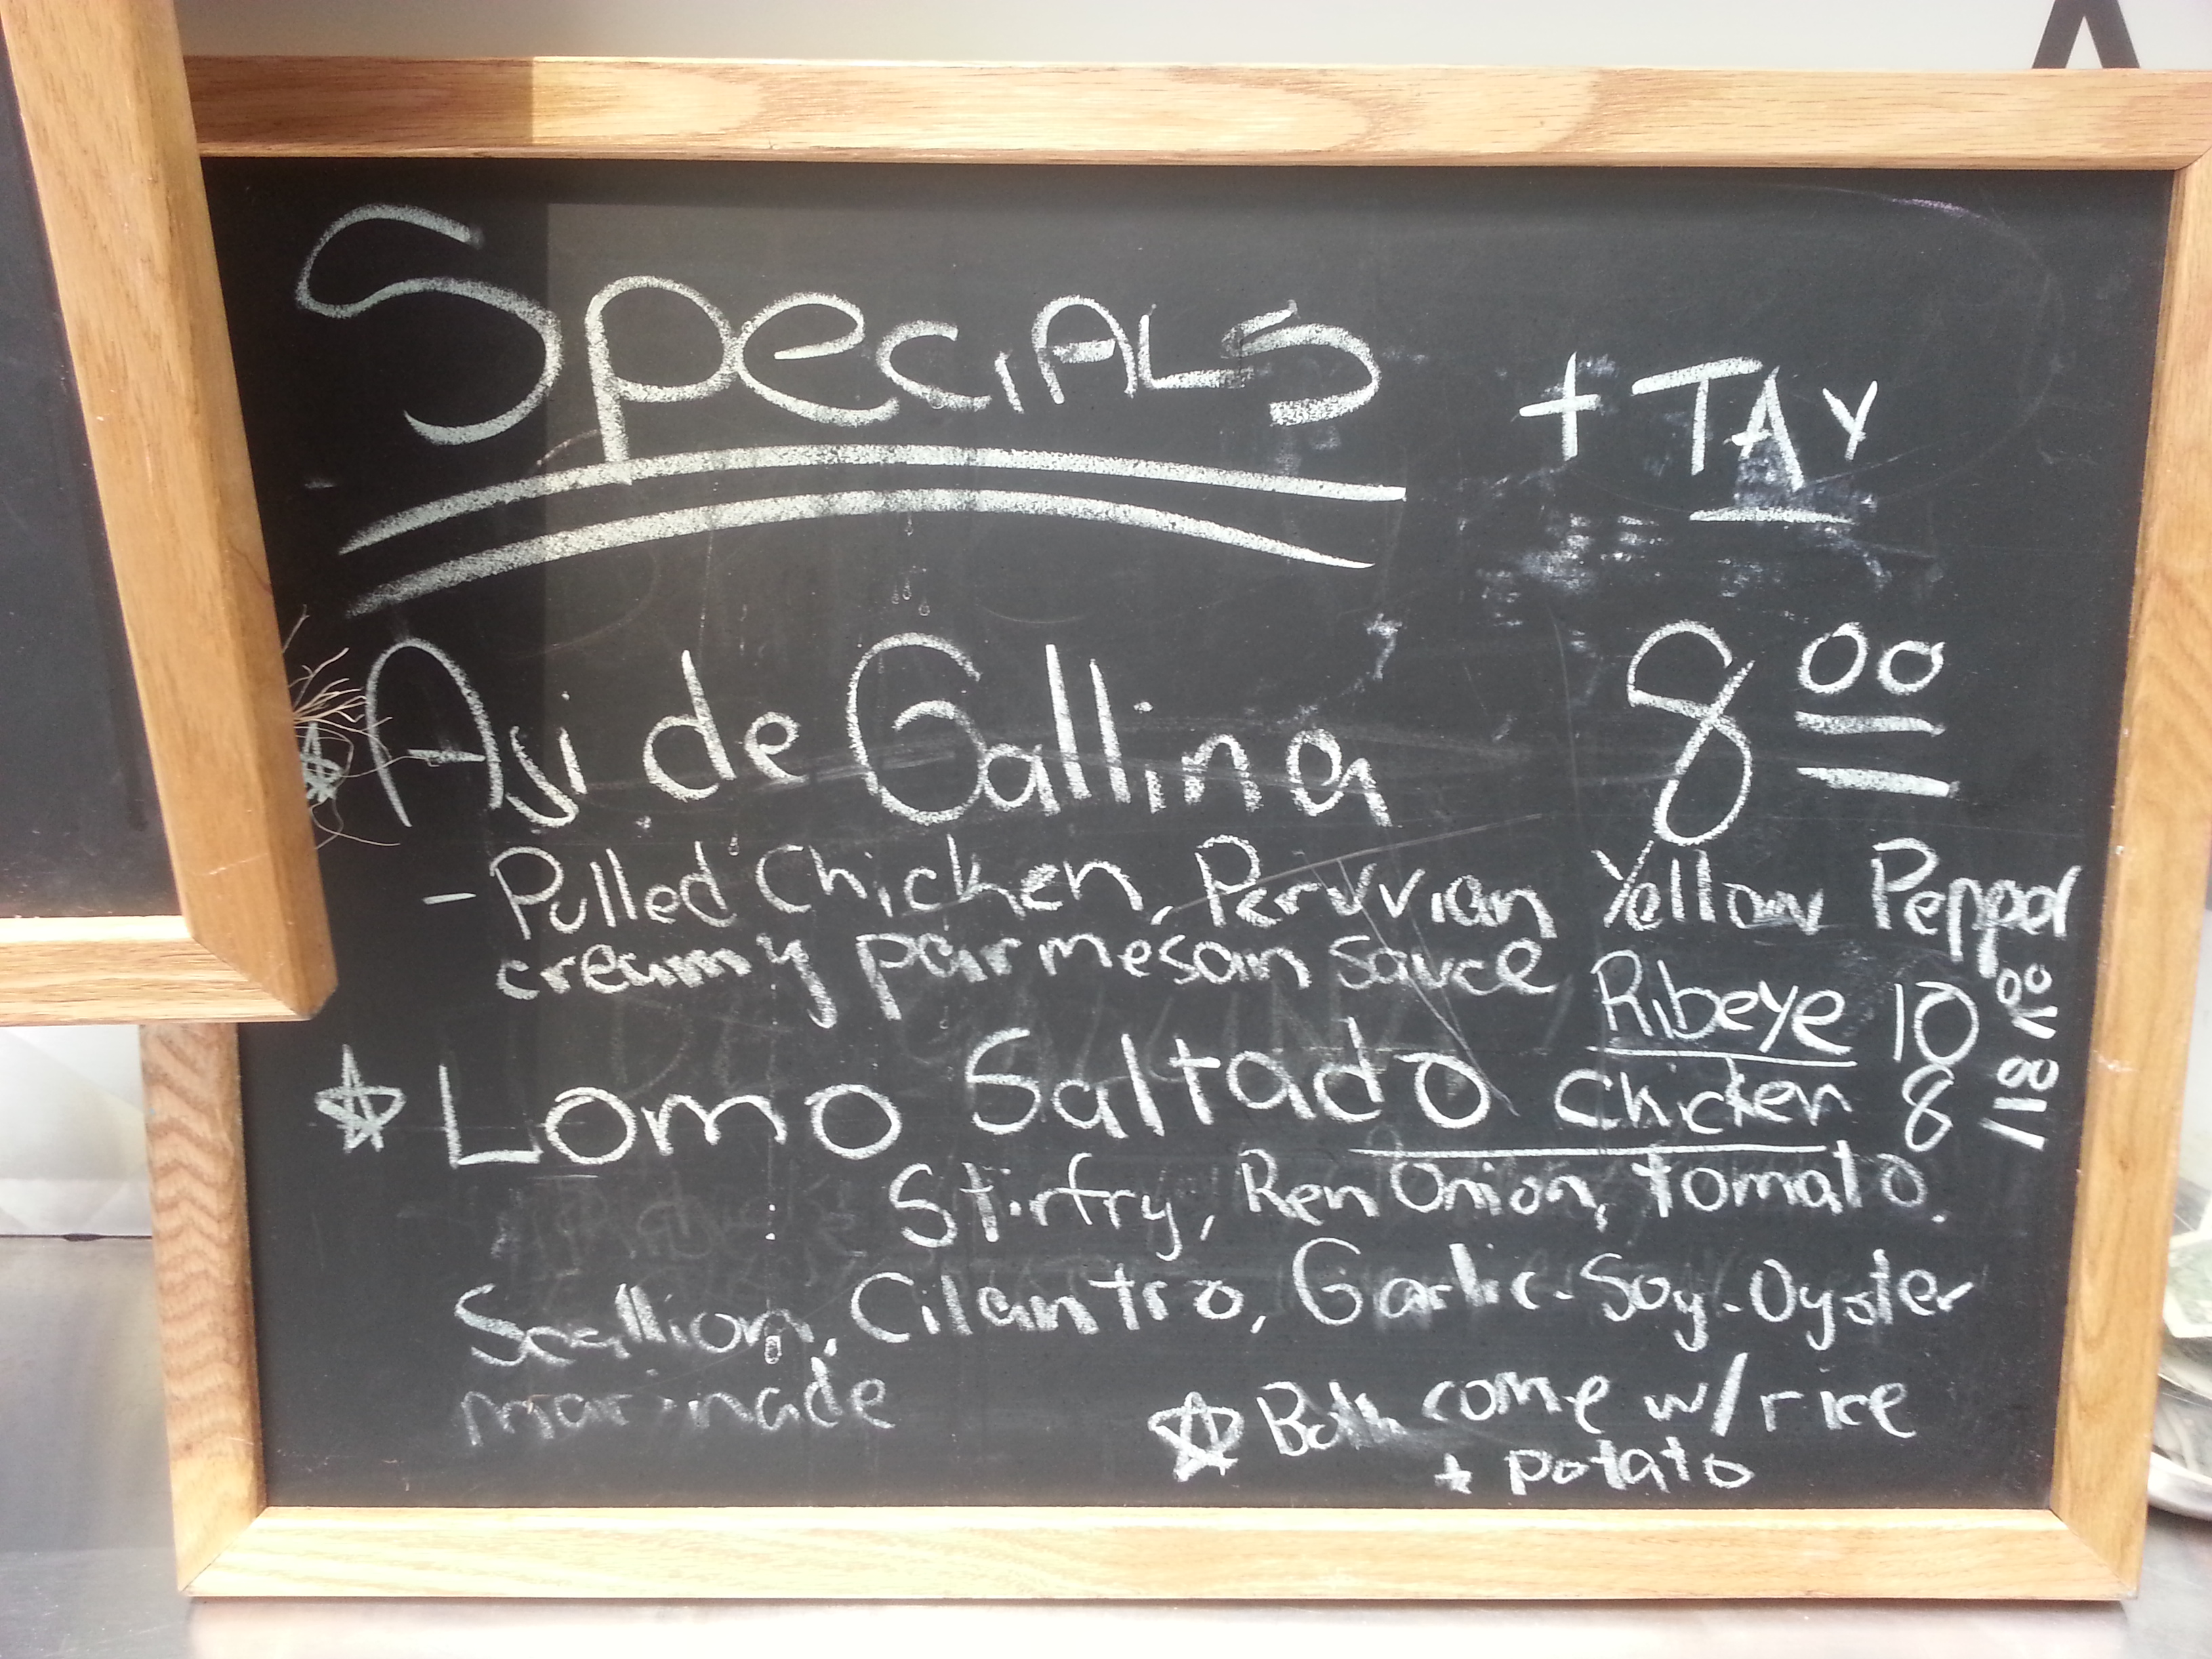 Specials + TAX
Aji de Gallina 8 00
- Pulled Chicken, Peruvian Yellow Pepper
creamy parmesan sauce
Ribeye 10 00
Lomo Saltado Chicken 8 00
Stirfry, Ren Onion, tomato.
Scallion, Cilantro, Garlic-Soy-Oyster
marinade
Both come w/ rice
+ potato
A